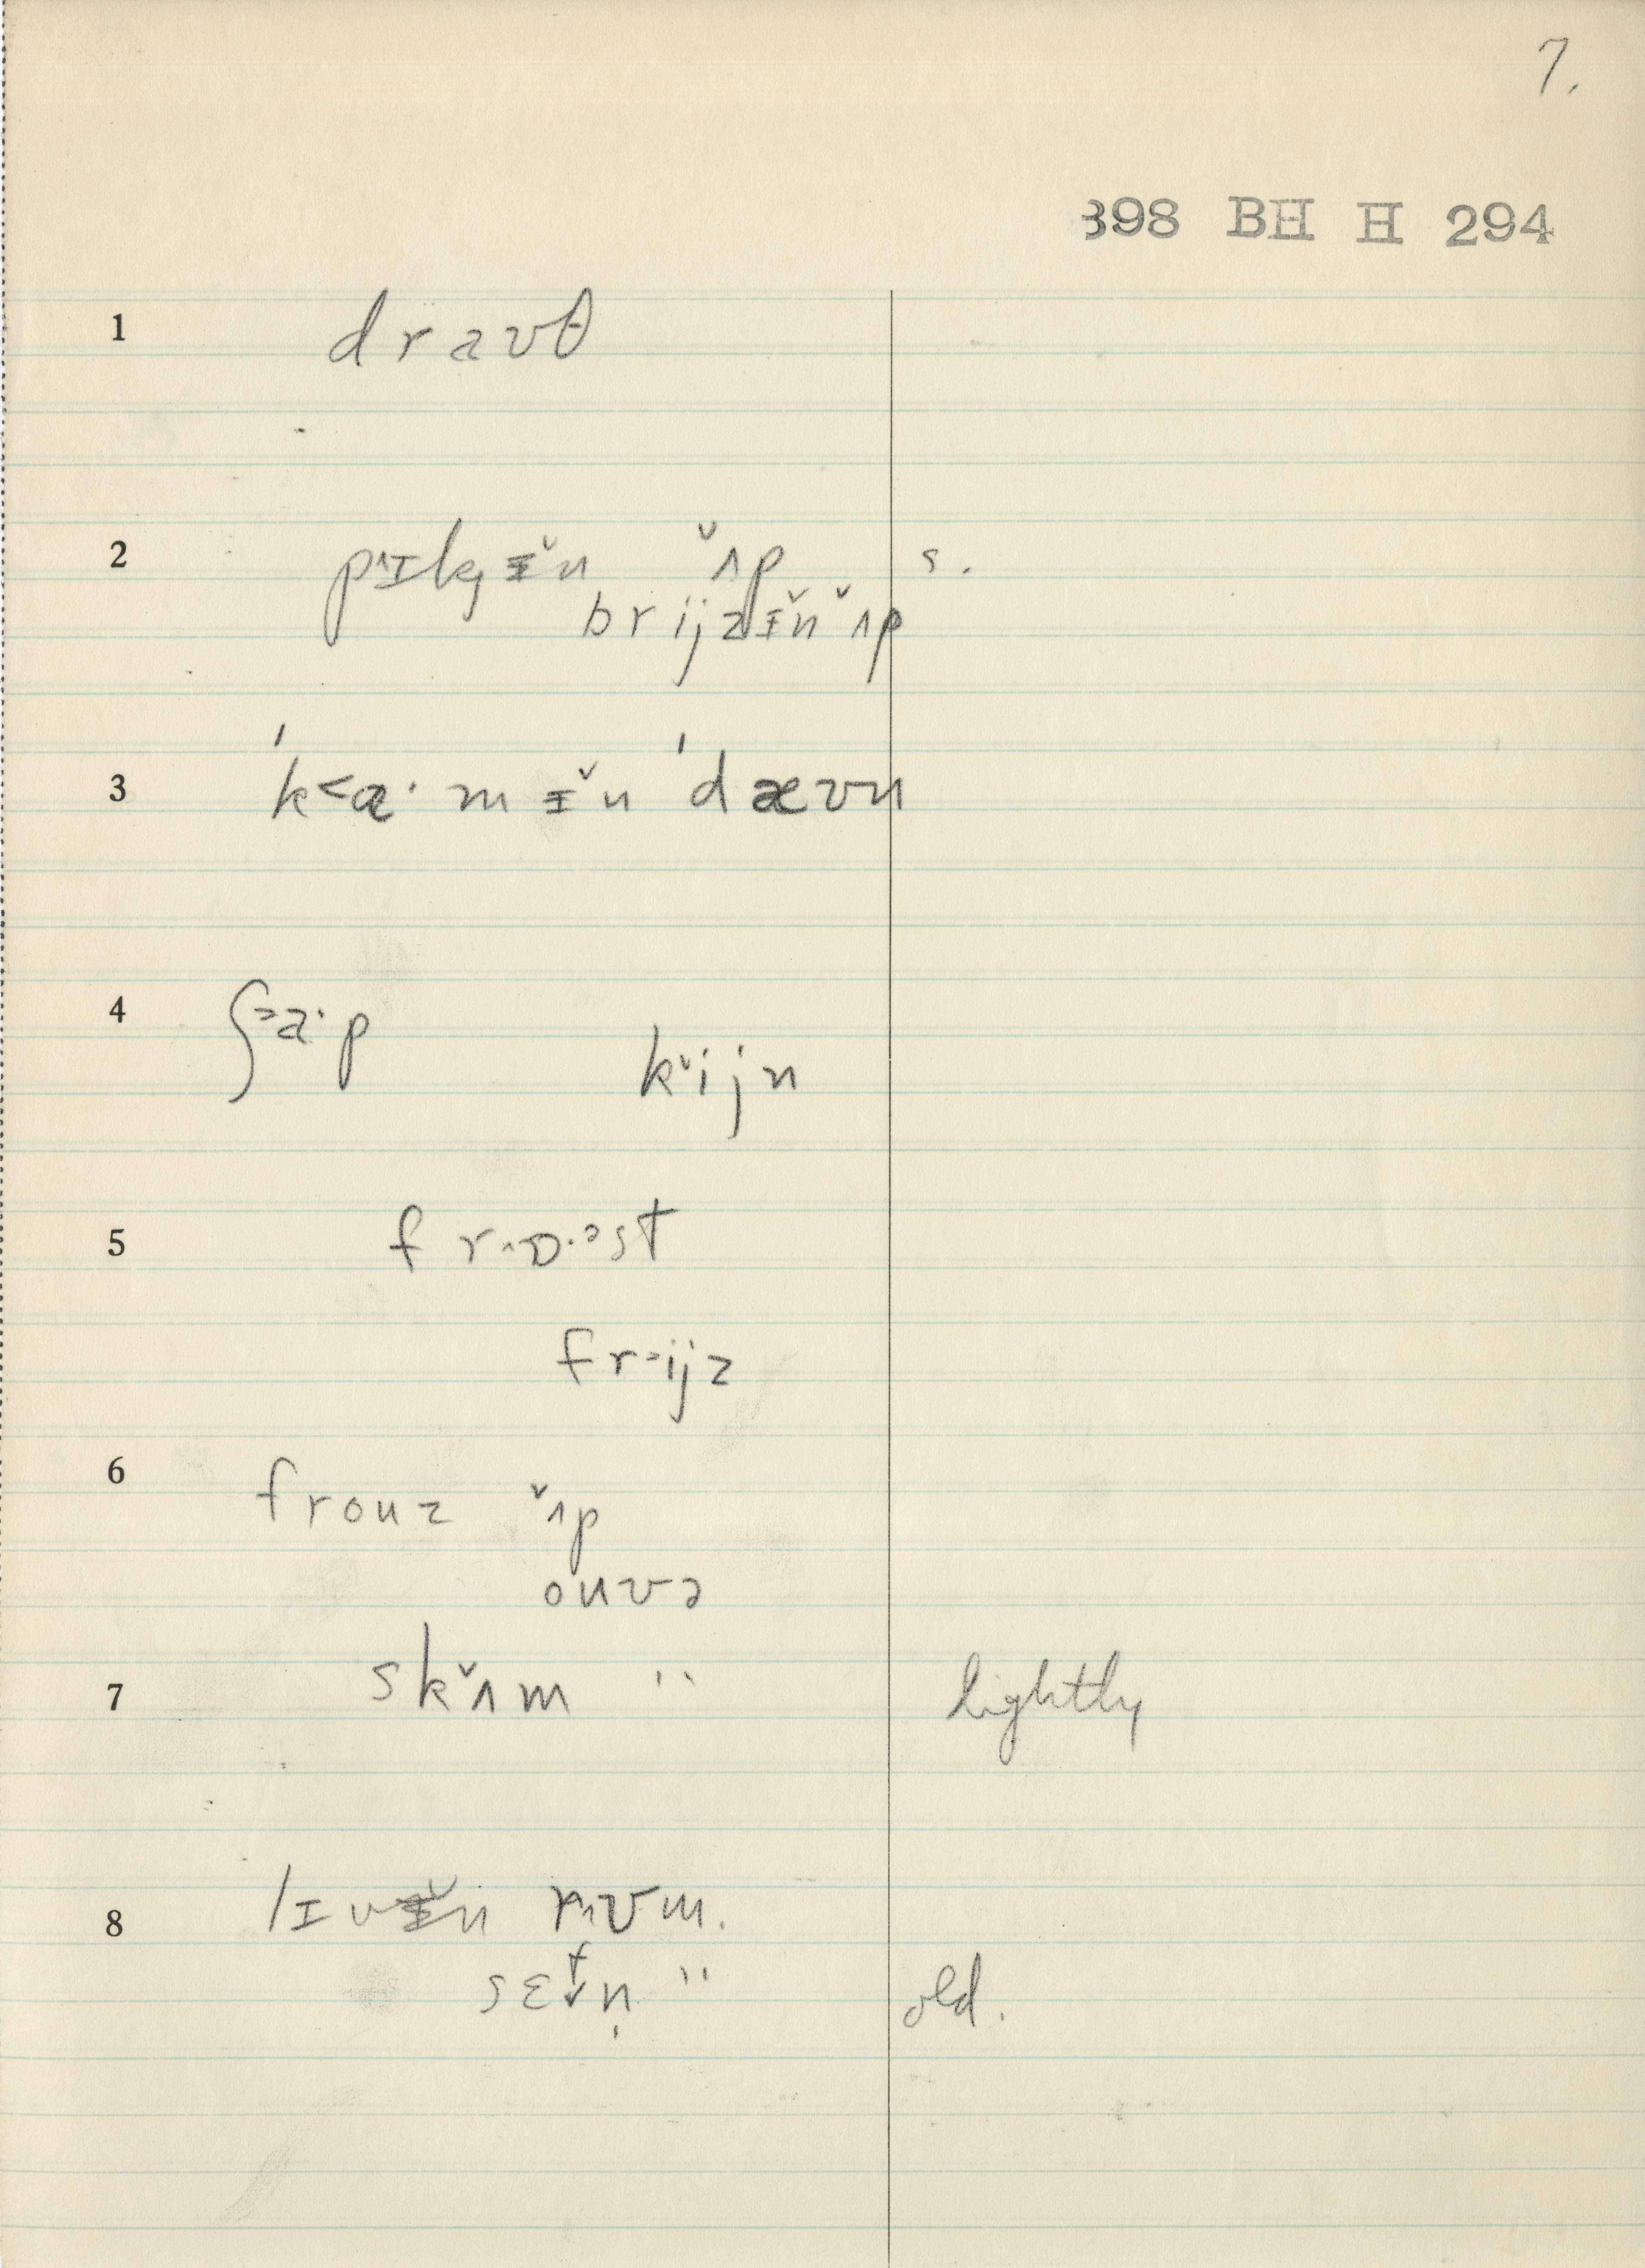 7.
398 BH H 294
1 d r a ʊ θ
2 p˄ɪk̡ɪ̵̌n ˇʌp s.
b r i j z ɪ̵̌n ˇʌp
3 ˈk˂ɑ· m ɪ̵̌n ˈd æ ʊ n
4 ʃ˃a· p
k˅i j n
5 f r˄ɒ·ᵊst
f r˃i j z
6 f r o u z ˇʌp
o u v ə
7 s k˅ʌ m " lightly
8 l ɪ v ɪ̵̌n r˄ʊ m.
s ɛ t˅n̩ " old.